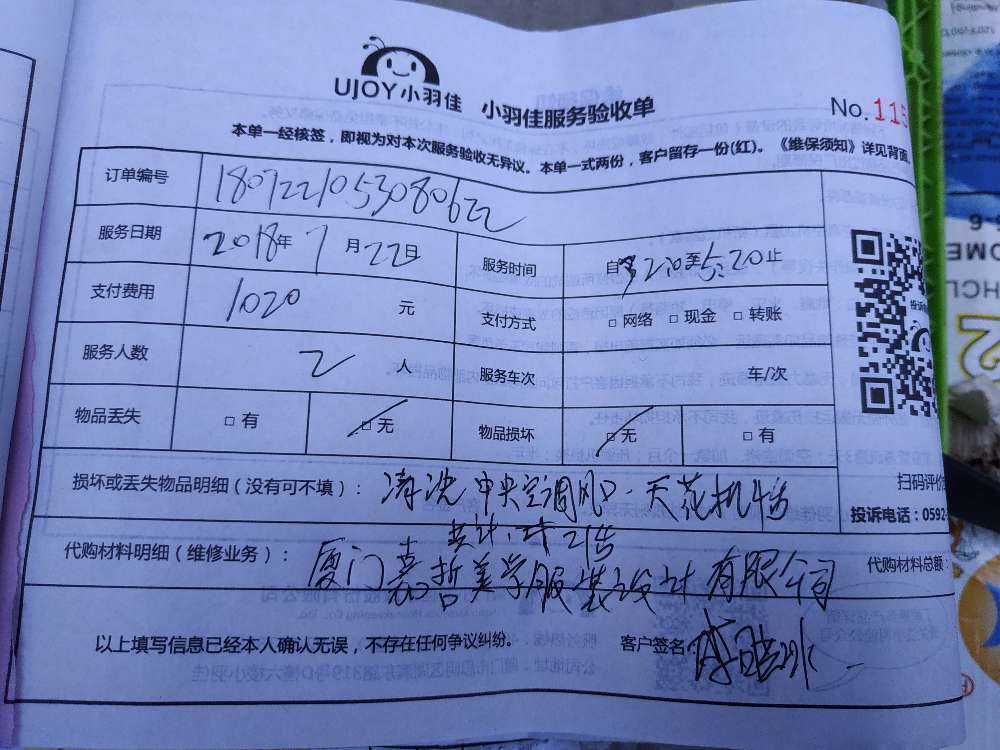 UJOY小羽佳 小羽佳服务验收单
No.115
本单一经核签，即视为对本次服务验收无异议。本单一式两份，客户留存一份(红)。《维保须知》详见背面
订单编号 1807221053080622
服务日期 2018年7月22日 服务时间 自 2:20至5:20止
支付费用 1020 元 支付方式 □网络 □现金 □转账
服务人数 2 人 服务车次 车/次
物品丢失 □有 □无 物品损坏 □无 □有
扫码评价
损坏或丢失物品明细（没有可不填）： 清洗中央空调风口.天花机4台
投诉电话：0592-
共计：21台
代购材料明细（维修业务）： 厦门嘉哲美学服装设计有限公司
代购材料总额：
以上填写信息已经本人确认无误，不存在任何争议纠纷。 客户签名：